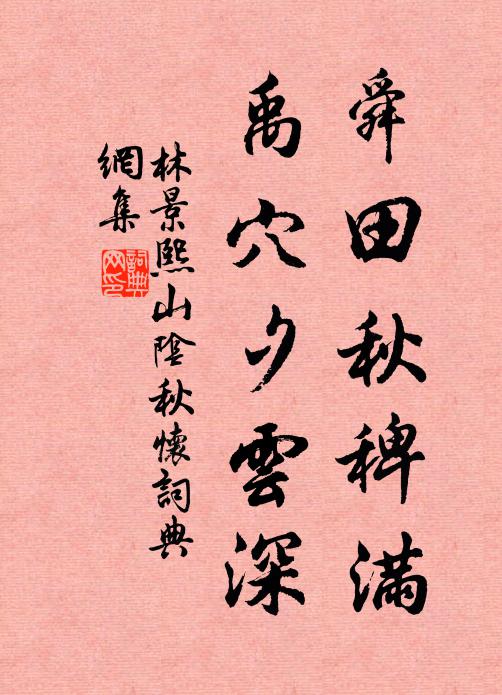 舜田秋稗滿
禹穴夕雲深
林景熙山陰秋懷詞典
網集
詞典網印